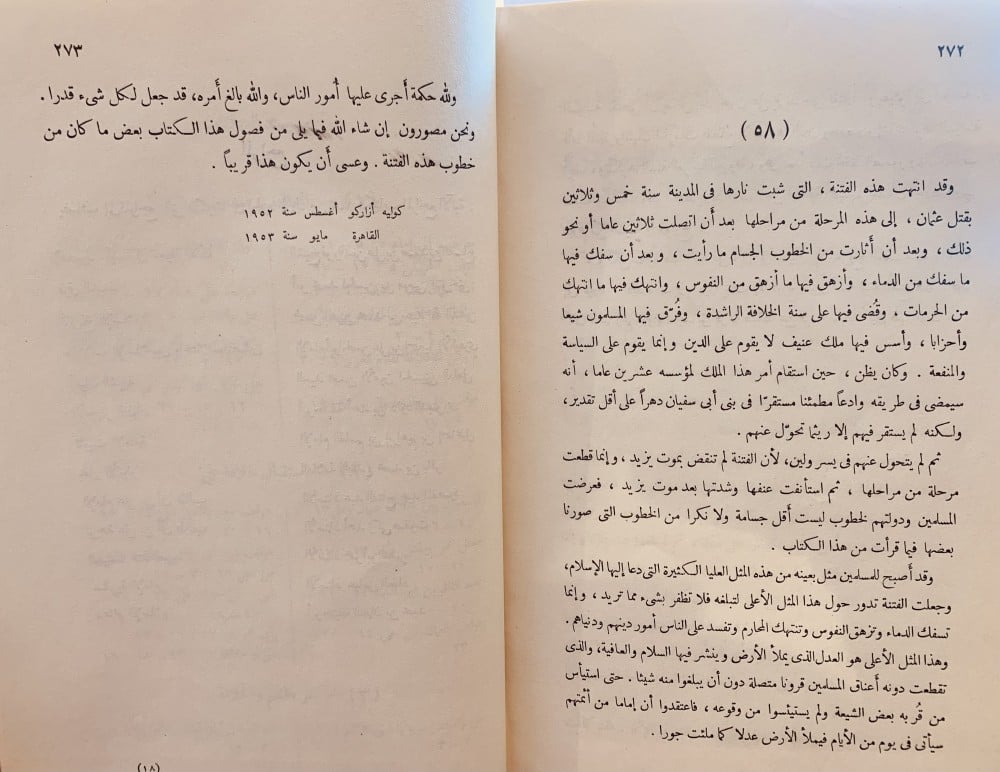 ٢٧٢
( ٥٨ )
وقد انتهت هذه الفتنة ، التى شبت نارها فى المدينة سنة خمس وثلاثين
بقتل عثمان ، إلى هذه المرحلة من مراحلها بعد أن اتصلت ثلاثين عاما أو نحو
ذلك ، وبعد أن أثارت من الخطوب الجسام ما رأيت ، وبعد أن سفك فيها
ما سفك من الدماء ، وأزهق فيها ما أزهق من النفوس ، وانتهك فيها ما انتهك
من الحرمات ، وقُضى فيها على سنة الخلافة الراشدة ، وفُرّق فيها المسلمون شيعا
وأحزابا ، وأسس فيها ملك عنيف لا يقوم على الدين وإنما يقوم على السياسة
والمنفعة . وكان يظن ، حين استقام أمر هذا الملك لمؤسسه عشرين عاما ، أنه
سيمضى فى طريقه وادعاً مطمئنا مستقرّا فى بنى أبى سفيان دهراً على أقل تقدير ،
ولكنه لم يستقر فيهم إلا ريثما تحوّل عنهم .
ثم لم يتحول عنهم فى يسر ولين، لأن الفتنة لم تنقض بموت يزيد ، وإنما قطعت
مرحلة من مراحلها ، ثم استأنفت عنفها وشدتها بعد موت يزيد ، فعرضت
المسلمين ودولتهم لخطوب ليست أقل جسامة ولا نكرا من الخطوب التى صورنا
بعضها فيما قرأت من هذا الكتاب .
وقد أصبح للمسلمين مثل بعينه من هذه المثل العليا الكثيرة التى دعا إليها الإسلام،
وجعلت الفتنة تدور حول هذا المثل الأعلى لتبلغه فلا تظفر بشىء مما تريد ، وإنما
تسفك الدماء وتزهق النفوس وتنتهك المحارم وتفسد على الناس أمور دينهم ودنياهم.
وهذا المثل الأعلى هو العدل الذى يملأ الأرض وينشر فيها السلام والعافية، والذى
تقطعت دونه أعناق المسلمين قرونا متصلة دون أن يبلغوا منه شيئا . حتى استيأس
من قُربه بعض الشيعة ولم يستيئسوا من وقوعه ، فاعتقدوا أن إماما من أئمتهم
سيأتى فى يوم من الأيام فيملأ الأرض عدلا كما ملئت جورا .
٢٧٣
ولله حكمة أجرى عليها أمور الناس، والله بالغ أمره، قد جعل لكل شىء قدرا .
ونحن مصورون إن شاء الله فيما يلى من فصول هذا الكتاب بعض ما كان من
خطوب هذه الفتنة . وعسى أن يكون هذا قريباً .
كوليه أزاركو أغسطس سنة ١٩٥٢
القاهرة مايو سنة ١٩٥٣
(١٨)